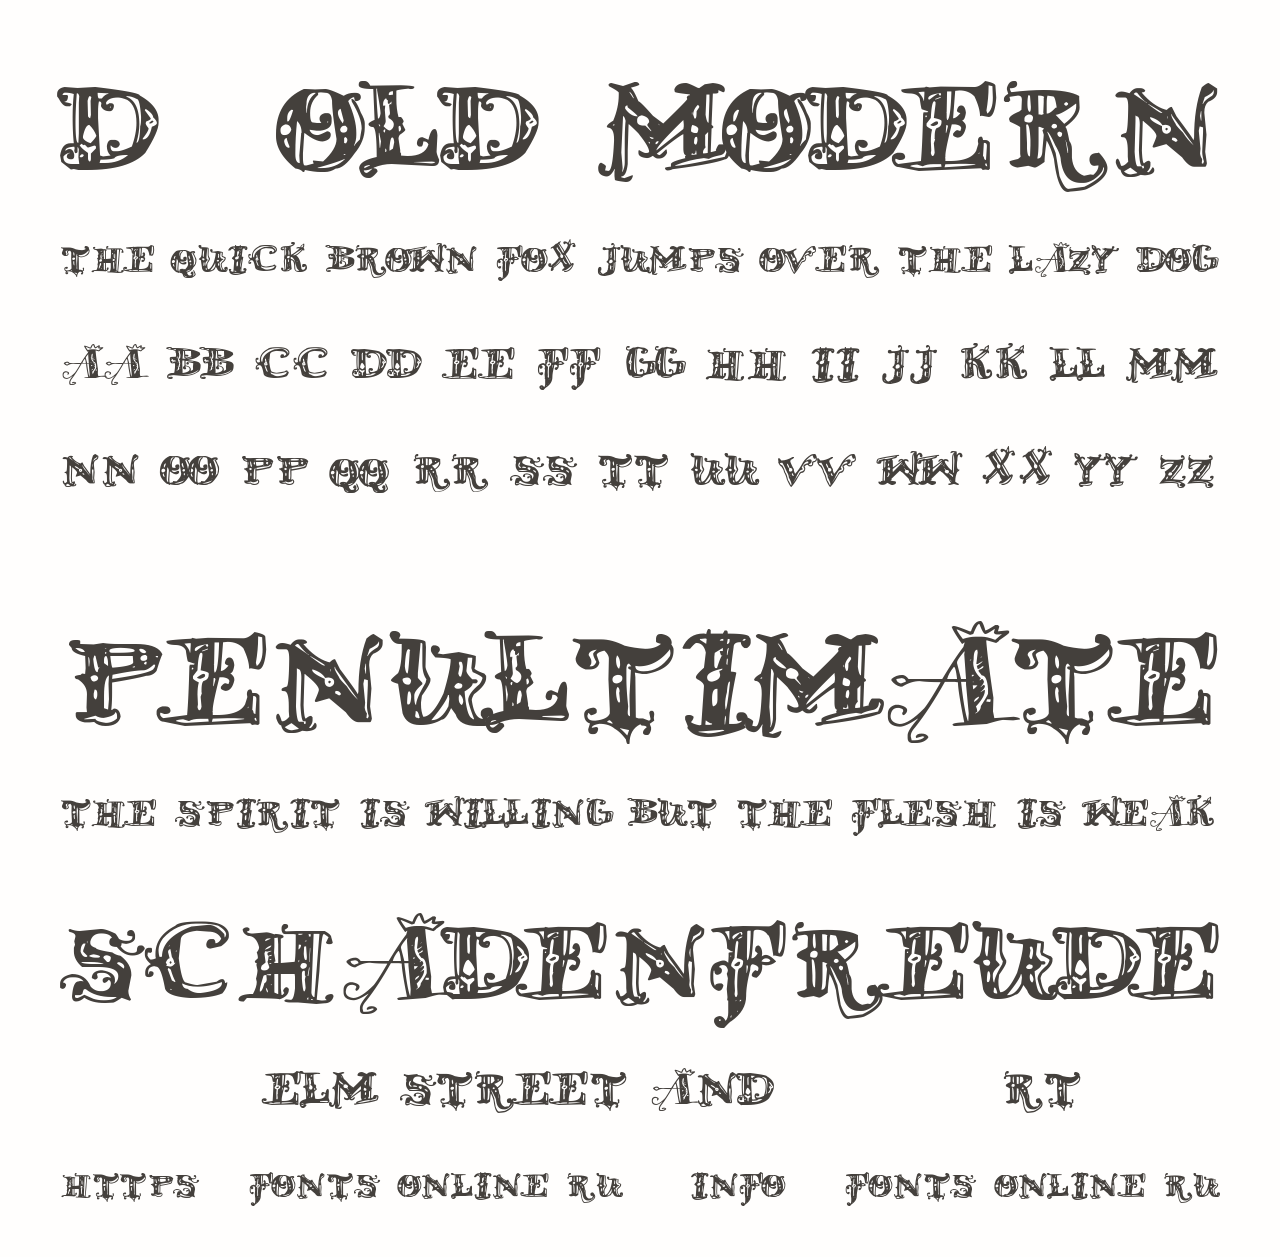 D OLD MODERN
THE QUICK BROWN FOX JUMPS OVER THE LAZY DOG
AA BB CC DD EE FF GG HH II JJ KK LL MM
NN OO PP QQ RR SS TT UU VV WW XX YY ZZ
PENULTIMATE
THE SPIRIT IS WILLING BUT THE FLESH IS WEAK
SCHADENFREUDE
ELM STREET AND RT
HTTPS FONTS ONLINE RU INFO FONTS ONLINE RU